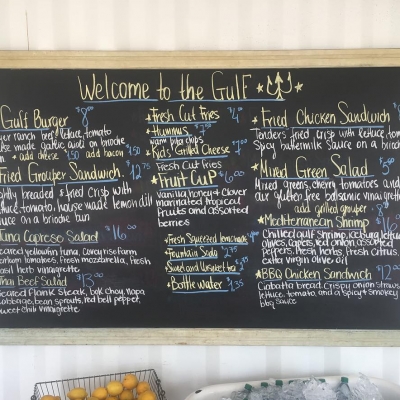 Welcome to the Gulf
Gulf Burger 8.00
ranch beef, lettuce, tomato
made garlic aioli on brioche
add cheese .50 add bacon
Fried Grouper Sandwich 12.75
lightly breaded & fried crisp with
lettuce, tomato, house made lemon dill
sauce on a brioche bun
Tuna Caprese Salad $16.00
seared yellowfin tuna,
tomatoes, fresh mozzarella, fresh
basil herb vinaigrette
Thai Beef Salad $13.00
Seared Flank Steak, bok choy, napa
cabbage, bean sprouts, red bell pepper,
sweet chili vinaigrette
Fresh Cut Fries $4.00
Hummus
warm pita chips
Kids Grilled Cheese
Fresh Cut fries
Fruit Cup $6.00
vanilla, honey & clover
marinated tropical
fruits and assorted
berries
Fresh Squeezed lemonade
Fountain Soda
Sweet and Unsweet tea
Bottle water
Fried Chicken Sandwich
Tenders fried crisp with lettuce, tom
Spicy buttermilk sauce on a brioch
Mixed Green Salad
Mixed greens, cherry tomatoes and
our gluten free balsamic vinaigrette
add grilled grouper
Mediterranean Shrimp
Chilled gulf shrimp, iceberg lettuce
olives, capers, red onion, assorted
peppers, fresh herbs, fresh citrus,
extra virgin olive oil
BBQ Chicken Sandwich $12
Ciabatta bread, Crispy onion straws
lettuce, tomato, and a spicy & smokey
bbq sauce